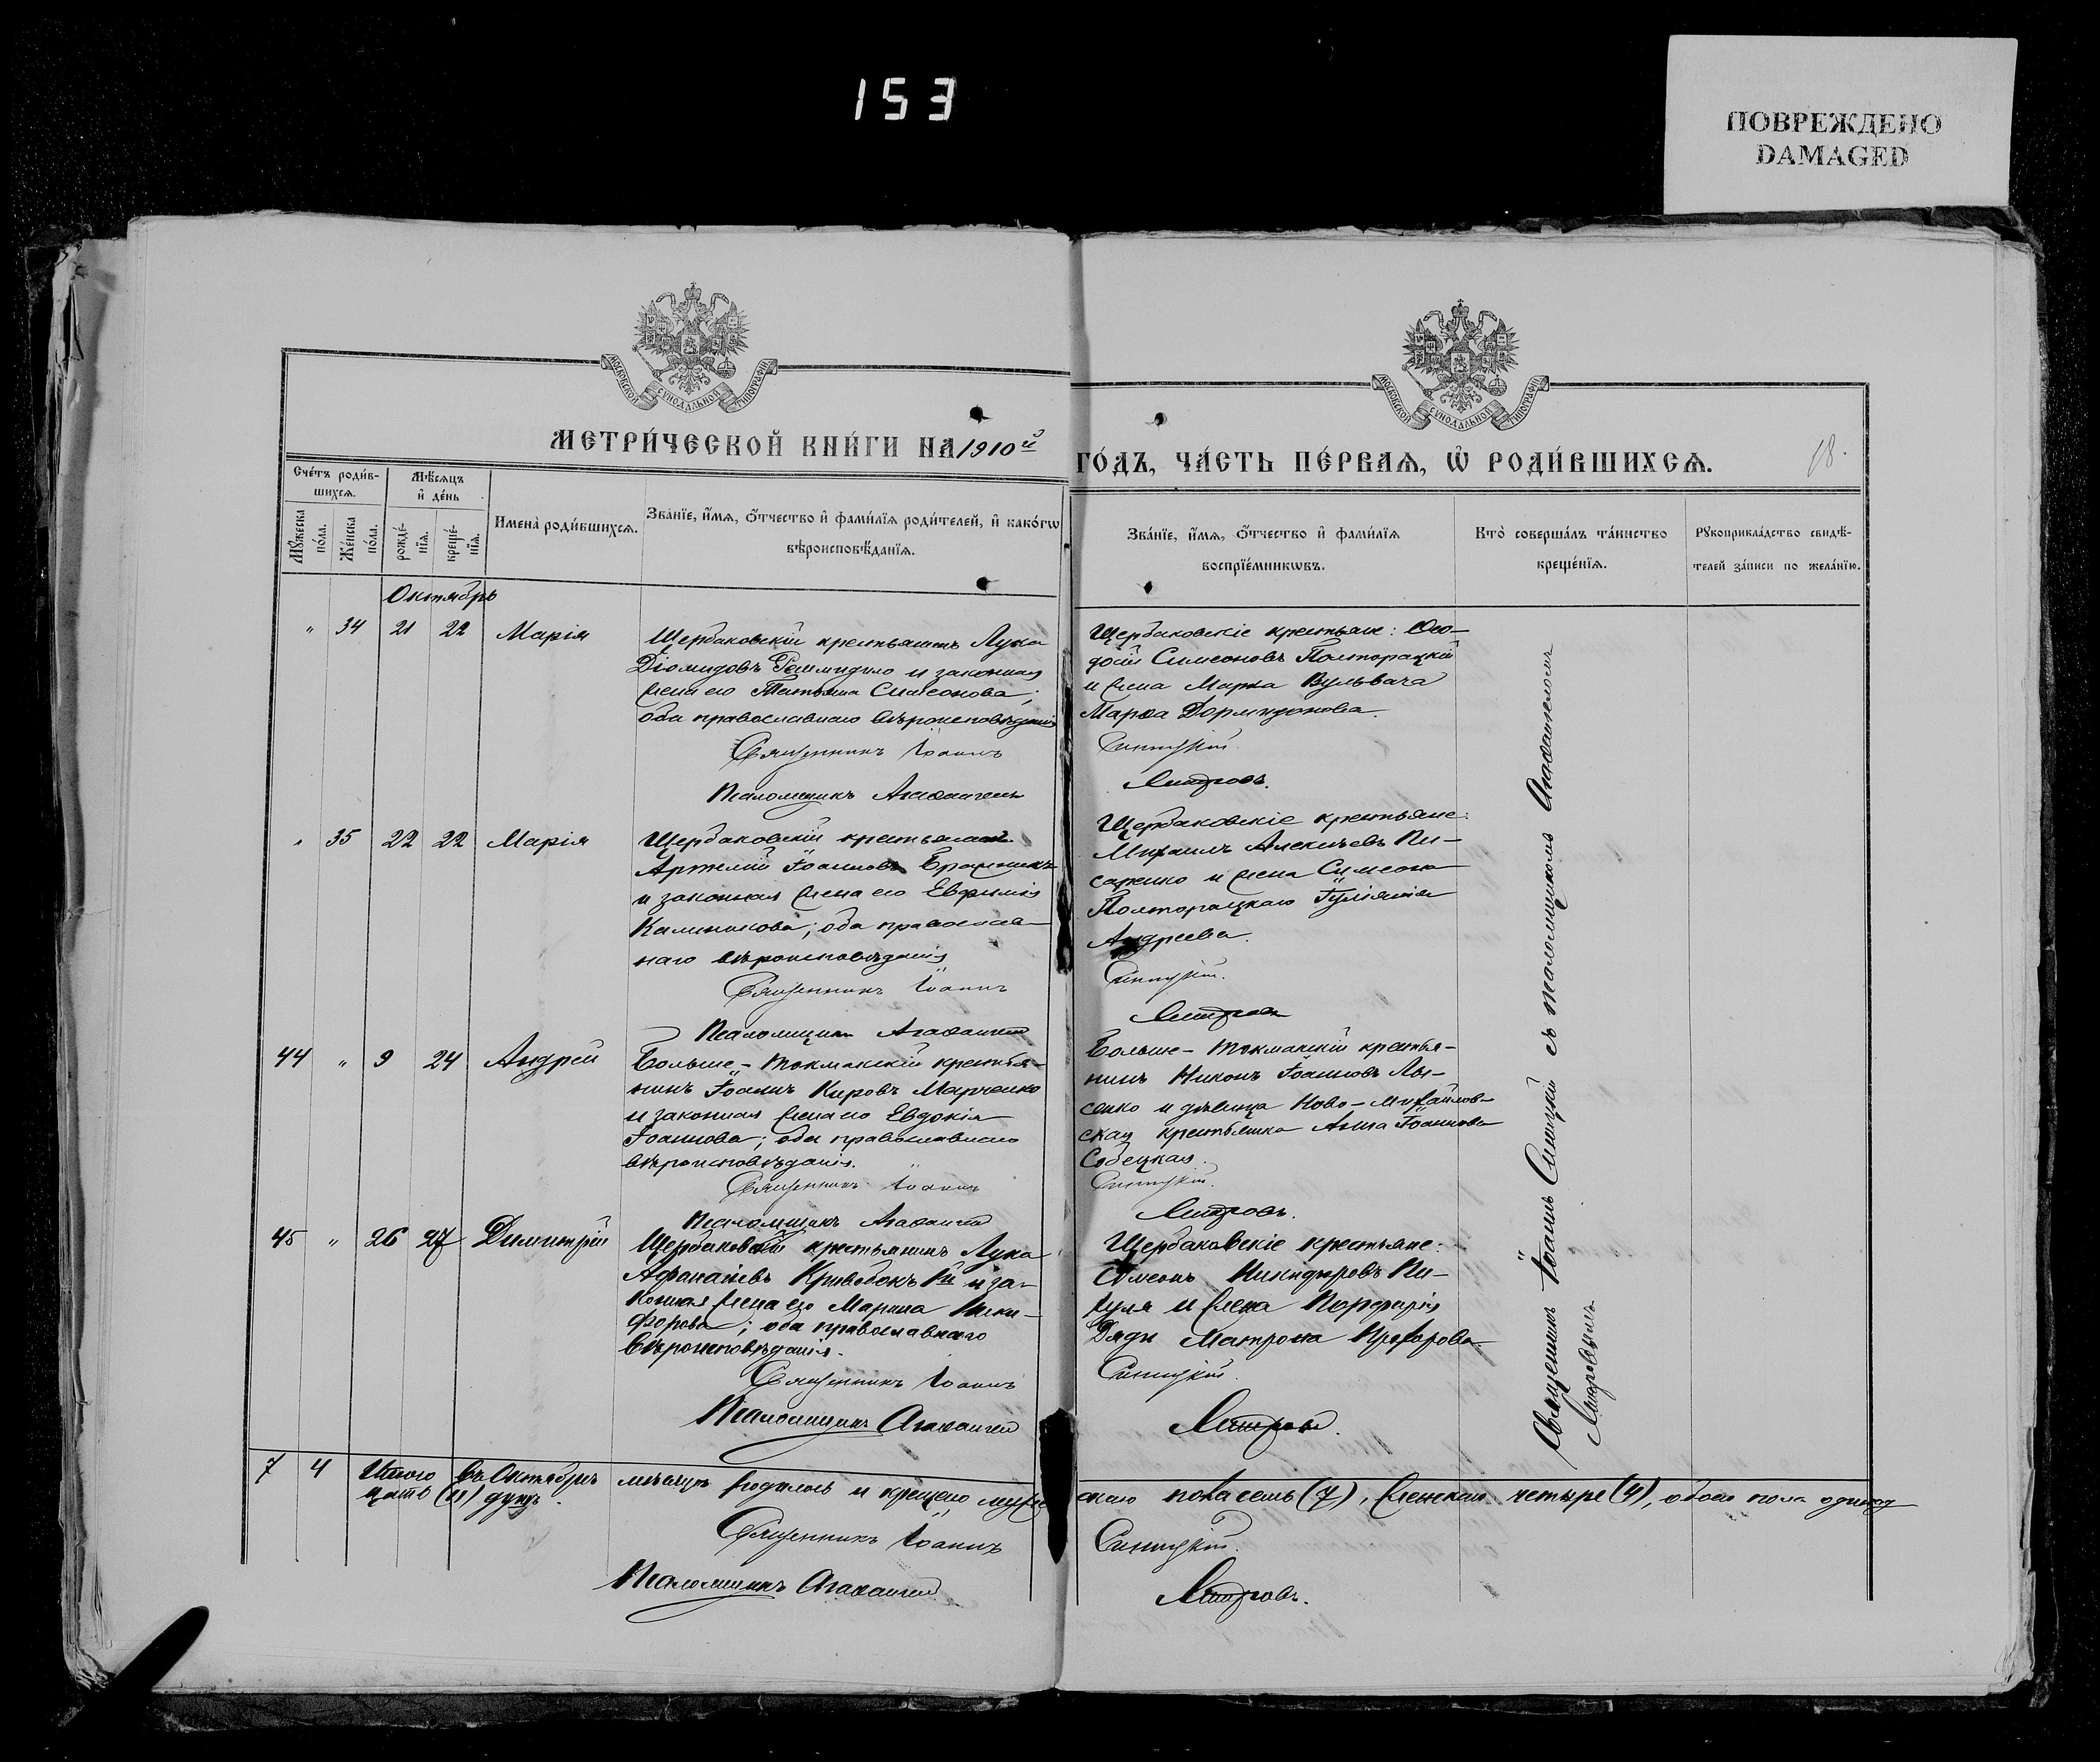 153
ПОВРЕЖДЕНО
DAMAGED
МОСКОВСКОЙ СУНОДАЛЬНОЙ ТИПОГРАФІИ
МОСКОВСКОЙ СУНОДАЛЬНОЙ ТИПОГРАФІИ
МЕТРИ́ЧЕСКОЙ КНИ́ГИ НА 1910й
ГО́ДЪ, ЧА́СТЬ ПЕ́РВАѦ, Ѡ҆ РОДИ́ВШИХСѦ.
18.
Сче́тъ роди́в-
шихсѧ.
Мѣ́сѧцъ
и҆ де́нь
Мꙋ́жеска
по́ла.
Же́нска
по́ла.
рожде́-
нїѧ.
креще́-
нїѧ.
Имена̀ роди́вшихсѧ.
Зва́нїе, и҆́мѧ, ѻ҆́тчество и҆ фами́лїѧ роди́телей, и҆ како́гѡ
вѣроисповѣ́данїѧ.
Зва́нїе, и҆́мѧ, ѻ҆́тчество и҆ фами́лїѧ
воспрїе́мникѡвъ.
Кто̀ соверша́лъ та́инство
креще́нїѧ.
Рꙋкоприкла́дство свидѣ́-
телей за́писи по жела́нїю.
Октябрь
" 34 21 22 Марія
Щербаковскій крестьянинъ Лука
Діомидовъ и законная
жена его Татьяна Симеонова;
оба православнаго вѣроисповѣданія
Священникъ Іоаннъ
Псаломщикъ Агаѳангелъ
Щербаковскіе крестьяне: Ѳео-
досій Симеоновъ Полторацкій
и жена Марка Вульвача
Марѳа Дормидонова.
Синицкій.
Митровъ.
" 35 22 22 Марія
Щербаковскій крестьянинъ
Артемій Іоанновъ
и законная жена его Евфимія
Калиникова; оба православ-
наго вѣроисповѣданія
Священникъ Іоаннъ
Псаломщикъ Агаѳангелъ
Щербаковскіе крестьяне:
Михаилъ Алексѣевъ Пи-
саренко и жена Симеона
Полторацкаго Іуліанія
Андреева.
Синицкій.
Митровъ
44 " 9 24 Андрей
Больше-Токмакскій крестья-
нинъ Іоаннъ Кировъ Марченко
и законная жена его Евдокія
Іоаннова; оба православнаго
вѣроисповѣданія.
Священникъ Іоаннъ
Псаломщикъ Агаѳангелъ
Больше-Токмакскій крестья-
нинъ Никонъ Іоанновъ Лы-
сенко и дѣвица Ново-Михайлов-
ская крестьянка Анна Іоаннова
Собецкая.
Синицкій.
Митровъ.
45 " 26 27 Димитрій
Щербаковскій крестьянинъ Лука
Афанасіевъ Кривобокъ 1й и за-
конная жена его Марина Ники-
форова; оба православнаго
вѣроисповѣданія.
Священникъ Іоаннъ
Псаломщикъ Агаѳангелъ
Щербаковскіе крестьяне:
Симеонъ Никифоровъ Пи-
куля и жена Порфирія
Дяди Матрона Прохорова.
Синицкій.
Митровъ.
Священникъ Іоаннъ Синицкій съ псаломщикомъ Агаѳангеломъ
Митровымъ
7 4 Итого въ Октябрѣ мѣсяцѣ родилось и крещено муже
скаго пола семь (7), женскаго четыре (4), обоего пола одинад
цать (11) душъ.
Священникъ Іоаннъ
Синицкій.
Псаломщикъ Агаѳангелъ
Митровъ.